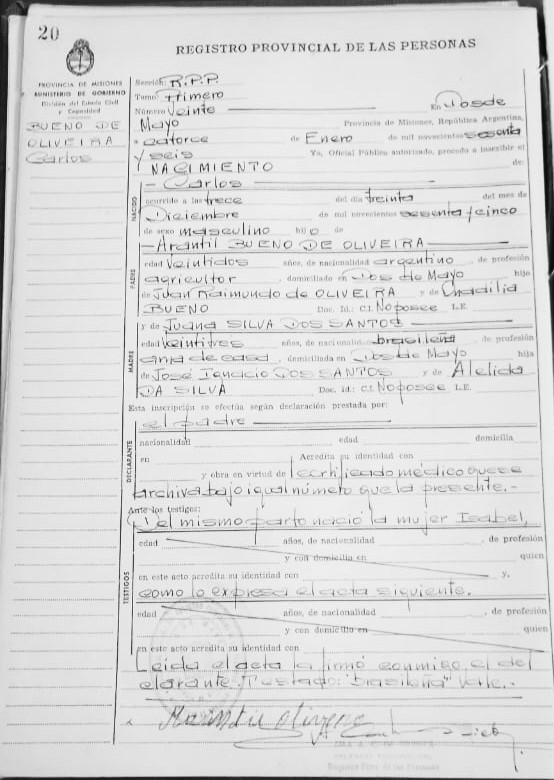 20
REGISTRO PROVINCIAL DE LAS PERSONAS
PROVINCIA DE MISIONES
MINISTERIO DE GOBIERNO
División del Estado Civil
y Capacidad
BUENO DE
OLIVEIRA
Carlos
Sección: R.P.P.
Tomo: Primero
Número Veinte En Dos de
Mayo Provincia de Misiones, República Argentina,
a catorce de Enero de mil novecientos sesenta
y seis Yo, Oficial Público autorizado, procedo a inscribir el
NACIMIENTO de:
NACIDO
- Carlos
ocurrido a las trece del día treinta del mes de
Diciembre de mil novecientos sesenta y cinco
de sexo masculino hijo de
PADRE
- Arantil BUENO DE OLIVEIRA
edad Veintidos años, de nacionalidad argentino de profesión
agricultor, domiciliado en Dos de Mayo hijo
de Juan Raimundo de OLIVEIRA y de Chadilia
BUENO Doc. Id.: C.I. No posee L.E.
MADRE
y de Juana SILVA DOS SANTOS
edad veintitres años, de nacionalid. brasileña de profesión
ama de casa, domiciliada en Dos de Mayo hija
de José Ignacio DOS SANTOS y de Alelida
DA SILVA Doc. Id.: C.I. No posee L.E.
Esta inscripción se efectúa según declaración prestada por:
DECLARANTE
el padre
nacionalidad edad domicilia
en Acredita su identidad con
y obra en virtud de certificado médico que se
archiva bajo igual número que la presente.-
Ante los testigos:
TESTIGOS
Del mismo parto nació la mujer Isabel,
edad años, de nacionalidad de profesión
y con domicilio en quien
en este acto acredita su identidad con y,
como lo expresa el acta siguiente.
edad años, de nacionalidad, de profesión
y con domicilio en quien
en este acto acredita su identidad con
Leída el acta la firmó conmigo, el de
clarante. Testado: "brasileña" Vale.-